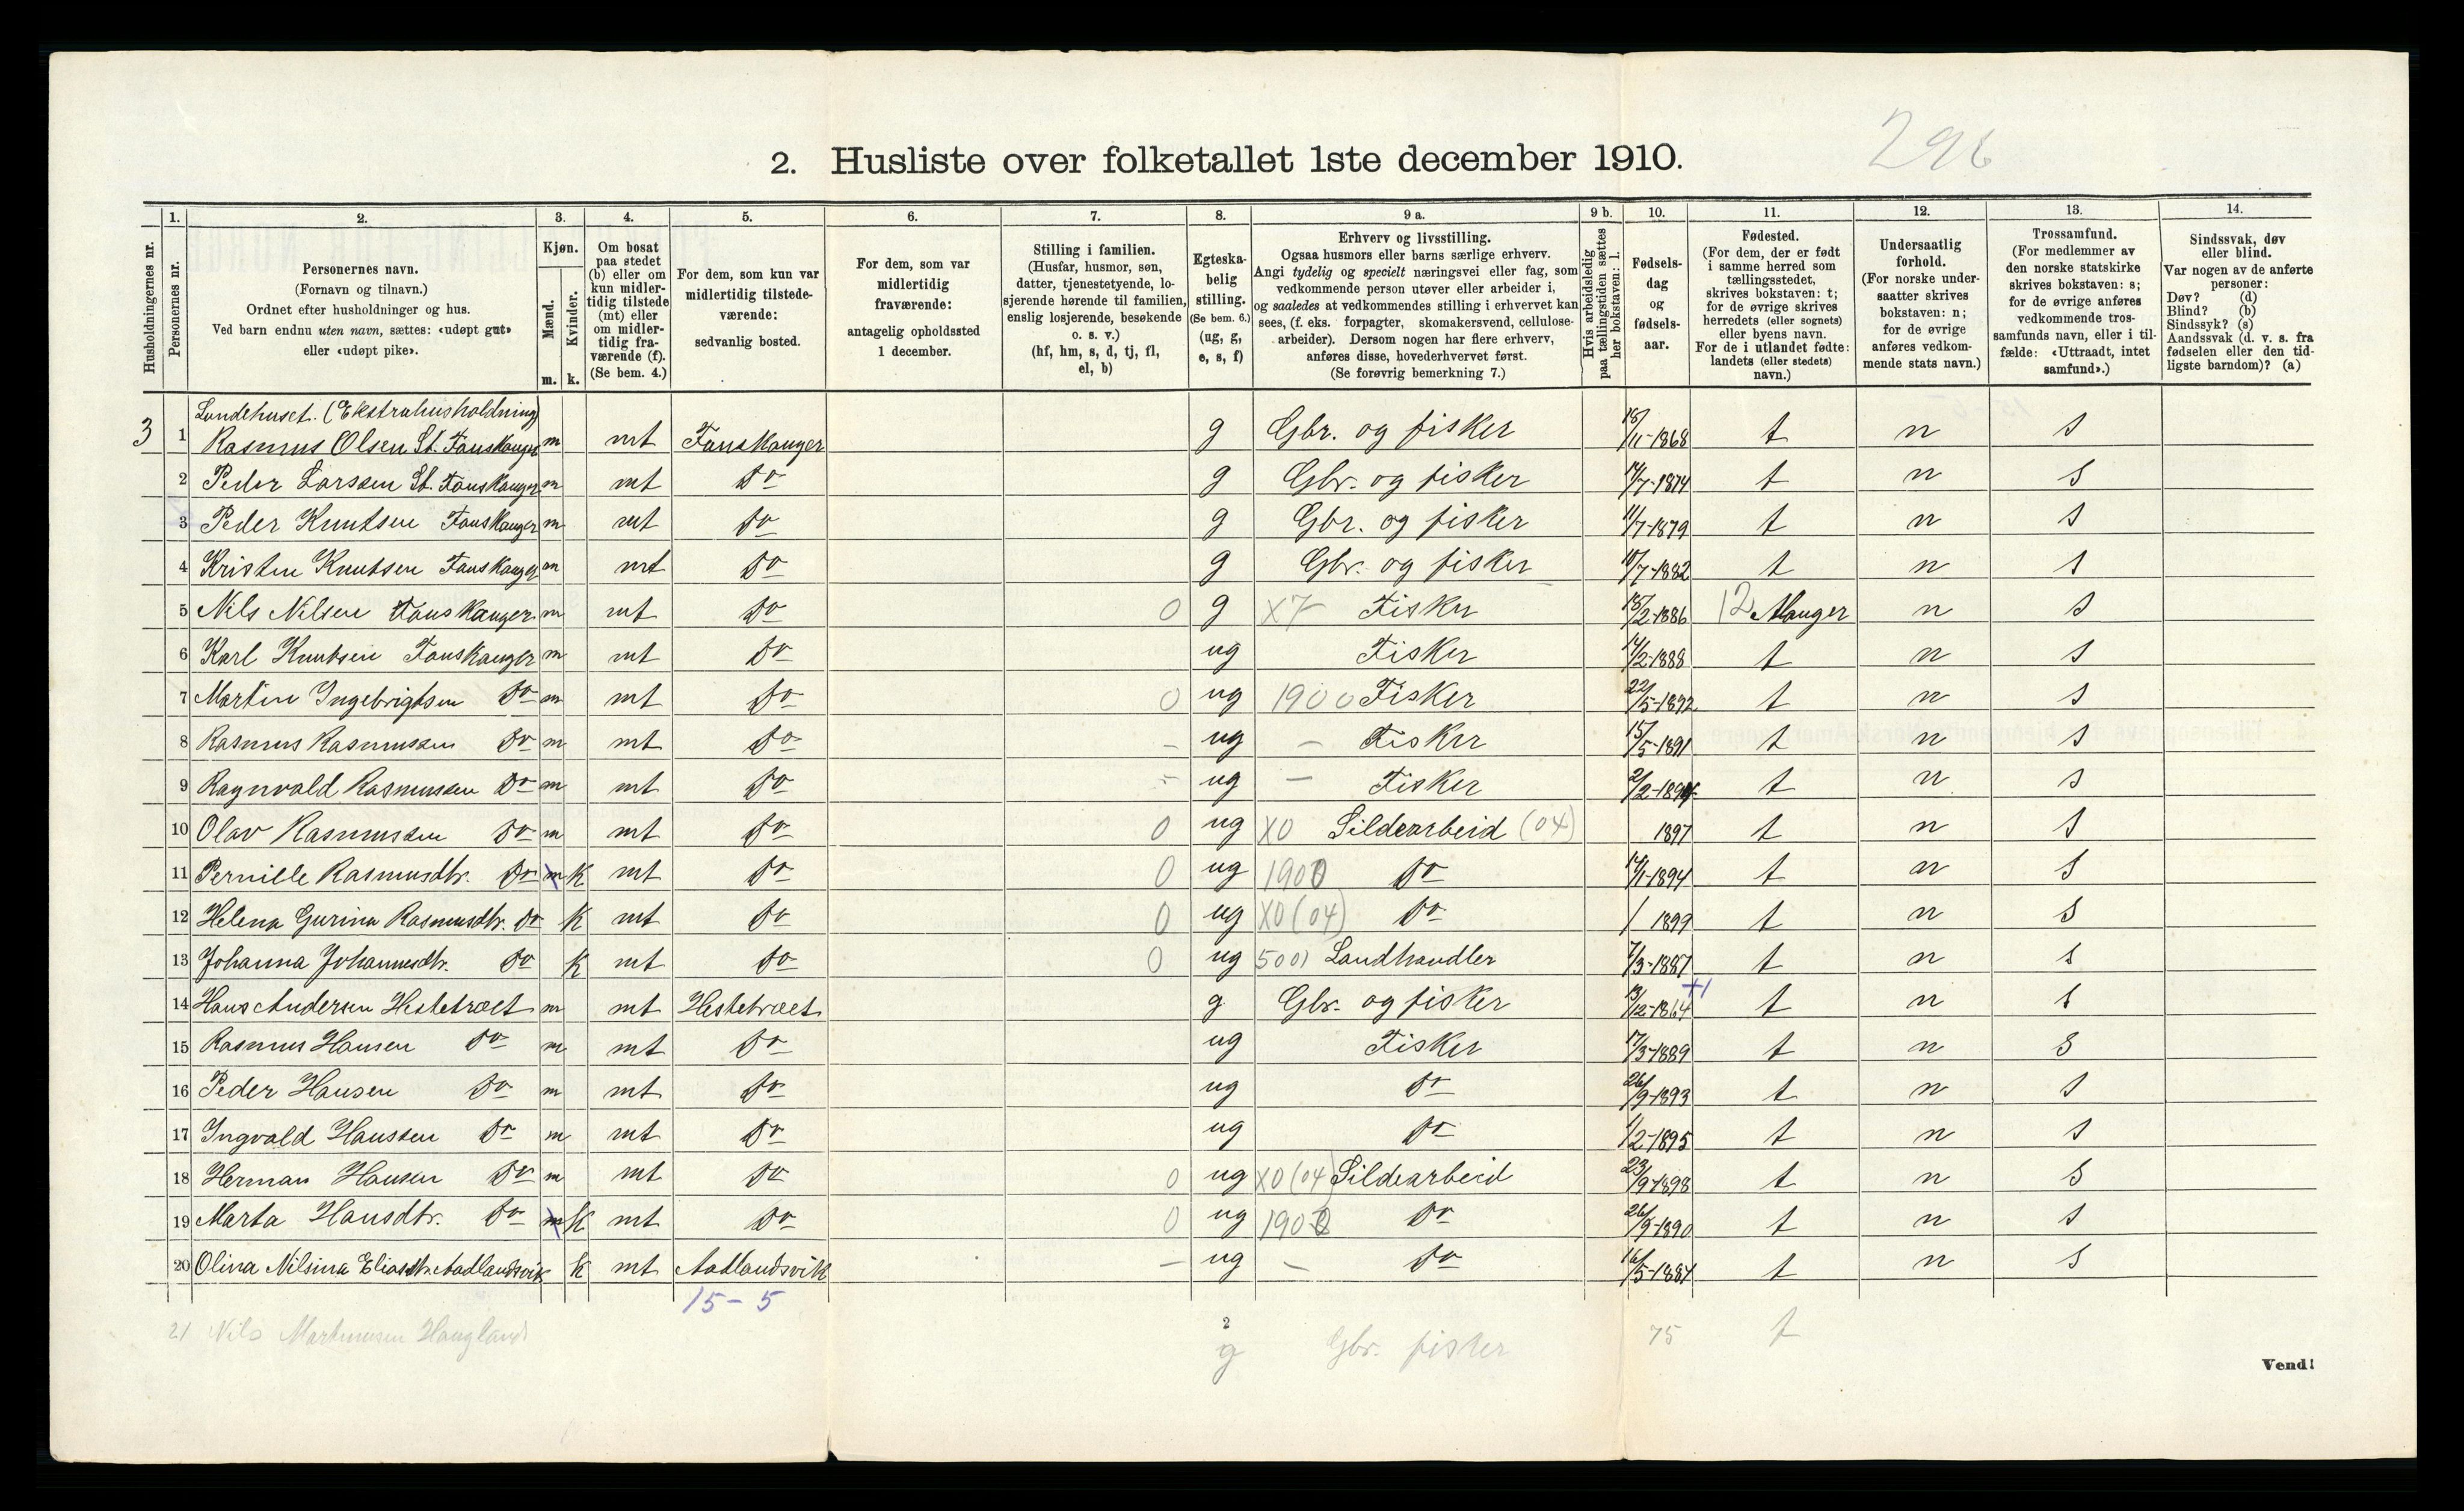 296
2. Husliste over folketallet 1ste december 1910.
Husholdningernes nr.
1. Personernes nr.
2. Personernes navn.
(Fornavn og tilnavn.)
Ordnet efter husholdninger og hus.
Ved barn endnu uten navn, sættes: «udøpt gut»
eller «udøpt pike».
3. Kjøn.
Mænd. m.
Kvinder. k.
4. Om bosat
paa stedet
(b) eller om
kun midler-
tidig tilstede
(mt) eller
om midler-
tidig fra-
værende (f).
(Se bem. 4.)
5. For dem, som kun var
midlertidig tilstede-
værende:
sedvanlig bosted.
6. For dem, som var
midlertidig
fraværende:
antagelig opholdssted
1 december.
7. Stilling i familien.
(Husfar, husmor, søn,
datter, tjenestetyende, lo-
sjerende hørende til familien,
enslig losjerende, besøkende
o. s. v.)
(hf, hm, s, d, tj, fl,
el, b)
8. Egteska-
belig
stilling.
(Se bem. 6.)
(ug, g,
e, s, f)
9 a. Erhverv og livsstilling.
Ogsaa husmors eller barns særlige erhverv.
Angi tydelig og specielt næringsvei eller fag, som
vedkommende person utøver eller arbeider i,
og saaledes at vedkommendes stilling i erhvervet kan
sees, (f. eks. forpagter, skomakersvend, cellulose-
arbeider). Dersom nogen har flere erhverv,
anføres disse, hovederhvervet først.
(Se forøvrig bemerkning 7.)
9 b. Hvis arbeidsledig
paa tællingstiden sættes
her bokstaven: l.
10. Fødsels-
dag
og
fødsels-
aar.
11. Fødested.
(For dem, der er født
i samme herred som
tællingsstedet,
skrives bokstaven: t;
for de øvrige skrives
herredets (eller sognets)
eller byens navn.
For de i utlandet fødte:
landets (eller stedets)
navn.)
12. Undersaatlig
forhold.
(For norske under-
saatter skrives
bokstaven: n;
for de øvrige
anføres vedkom-
mende stats navn.)
13. Trossamfund.
(For medlemmer av
den norske statskirke
skrives bokstaven: s;
for de øvrige anføres
vedkommende tros-
samfunds navn, eller i til-
fælde: «Uttraadt, intet
samfund».)
14. Sindssvak, døv
eller blind.
Var nogen av de anførte
personer:
Døv? (d)
Blind? (b)
Sindssyk? (s)
Aandssvak (d. v. s. fra
fødselen eller den tid-
ligste barndom)? (a)
Landehuset. (Ekstrahusholdning)
3 1 Rasmus Olsen St. Fauskanger m mt Fauskanger g Gbr. og fisker 18/11-1868 t n s
2 Peder Larssen St. Fauskanger m mt Do g Gbr. og fisker 14/7-1874 t n s
3 Peder Knutsen Fauskanger m mt Do g Gbr. og fisker 11/7-1879 t n s
4 Kristen Knutsen Fauskanger m mt Do g Gbr. og fisker 10/7-1882 t n s
5 Nils Nilsen Fauskanger m mt Do 0 g X7 Fisker 18/2-1886 12 Manger n s
6 Karl Knutsen Fauskanger m mt Do ug Fisker 14/2-1888 t n s
7 Martin Ingebrigtsen Do m mt Do 0 ug 1900 Fisker 22/5-1892 t n s
8 Rasmus Rasmussen Do m mt Do - ug - Fisker 15/5-1891 t n s
9 Ragnvald Rasmussen Do m mt Do - ug - Fisker 2/2-1894 t n s
10 Olav Rasmussen Do m mt Do 0 ug X0 Sildearbeid (04) 1897 t n s
11 Pernille Rasmusdtr. Do m k mt Do 0 ug 1900 Do 14/1-1894 t n s
12 Helena Gurina Rasmusdtr. Do k mt Do 0 ug X0 (04) Do / 1899 t n s
13 Johanna Johannesdtr. Do k mt Do 0 ug 5001 Landhandler 7/3-1887 t n s
14 Hans Andersen Hestetræet m mt Hestetræet g Gbr. og fisker 13/12-1864 +1 t n s
15 Rasmus Hansen Do m mt Do ug Fisker 17/3-1889 t n s
16 Peder Hansen Do m mt Do ug Do 26/9-1893 t n s
17 Ingvald Hanssen Do m mt Do ug Do 1/2-1895 t n s
18 Herman Hansen Do m mt Do 0 ug X0 (04) Sildearbeid 23/9-1898 t n s
19 Marta Hansdtr. Do m k mt Do 0 ug 1900 Do 26/9-1890 t n s
20 Olina Nilsina Eliasdtr. Aadlandsvik k mt Aadlandsvik - ug - Do 16/5-1884 t n s
15 - 5
21 Nils Martinusen Haugland g Gbr. fisker 75 t
2
Vend!